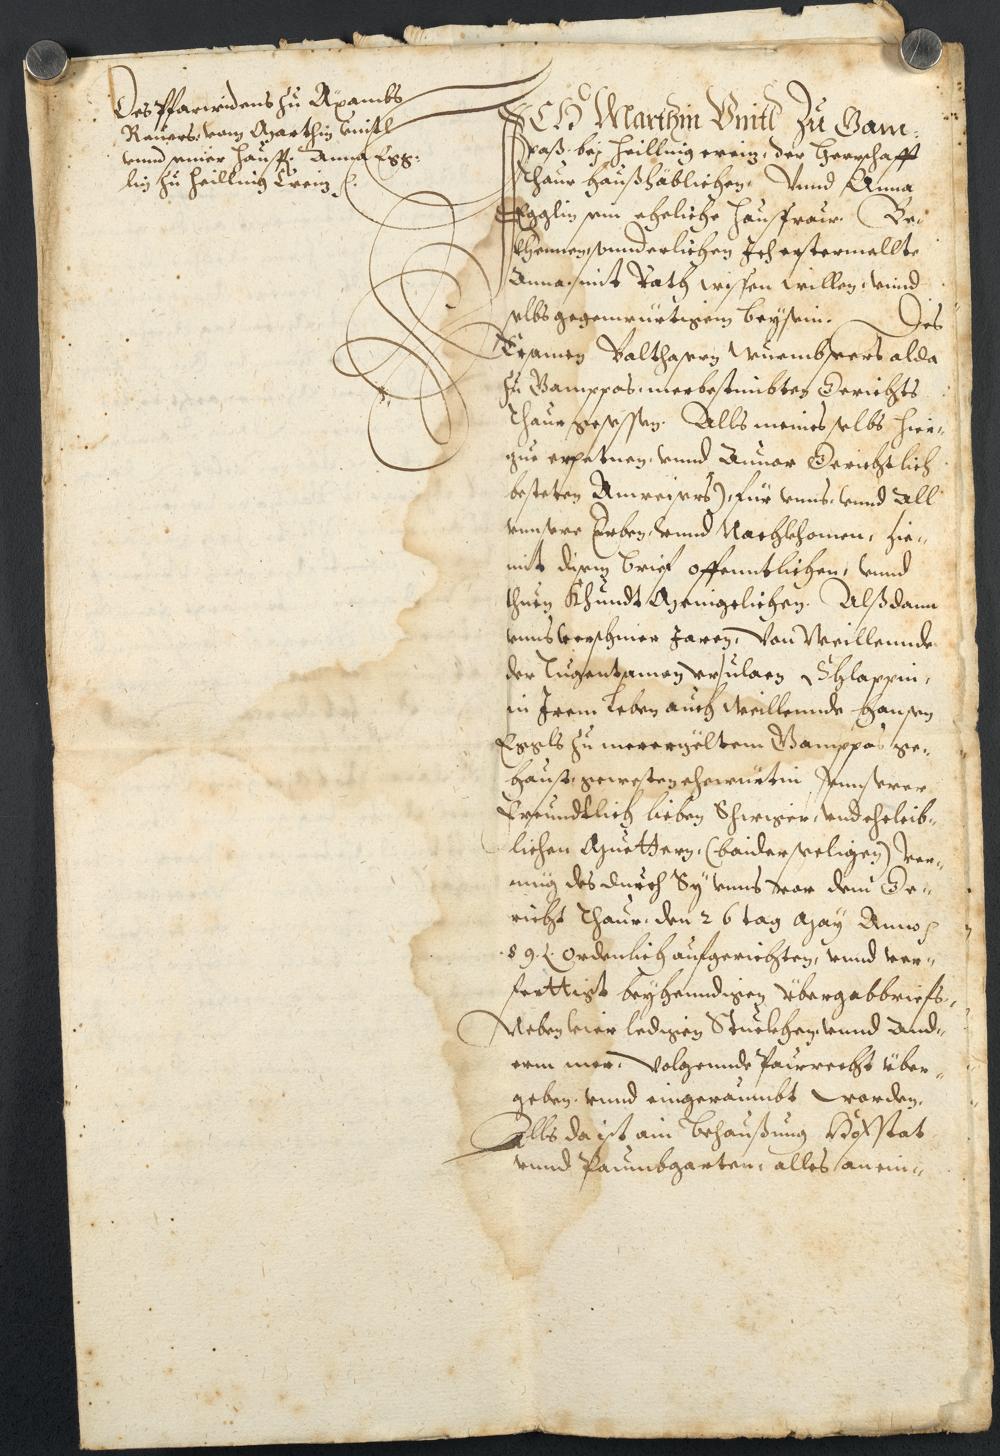 Des Pfarrwidens zu Äpambs
Reuers, vom Marthin Vnitl
vnnd seiner Hausf: Anna Egg:
lin zu Heilling Creiz
ICH Marthin Vnitl Zu Gam:
paß bey Heilling creiz, der Herrschafft
Thaur haußhäblichen, Vnnd Anna
Egglin sein eheliche Hausfraw. Be:
khennen sonnderlichen Ich erstermellte
Anna, mit Rath wissen willen, vnnd
selbs gegenwürtigem beysein. Des
Ersamen Balthasern alda
zu Gamppas, merbestimbten Gerichts
Thaur gesessen. Alls meines selbs hier:
zue erpetnen, vnnd Gerichtlich
besteten Anweisers), für vnns, vnnd all
vnnsere Erben, vnnd Nachkhomen, hie:
mit disem brief offenntlichen, vnnd
thuen khundt Menigelichen. Alßdann
vnns verschiner Jaren, Von Weillennde
der Tugentsamen Vrsulaen Schlappin,
in Irem Leben auch Weillennde Hannsen
Eggls zu merermeltem Gamppas ge:
haust, gewesten ehewürtin, vnnserer
Freundtlich lieben Schwiger, vnd eheleib:
lichen Muettern, (baider seeligen) ver:
müg des durch Sy vnns vor dem Ge:
richt Thaur, den 26 tag May Anno
89. ordenlich aufgerichten, vnnd ver:
fertigt beyhenndigen Übergabbriefs,
Neben vier ledigen Stuckhen, vnnd annd:
erm mer, Volgennde Paurecht über:
geben, vnnd eingeraumbt worden.
Alls da ist ain behaußung Hofstat
vnnd Paumbgarten, alles anein: